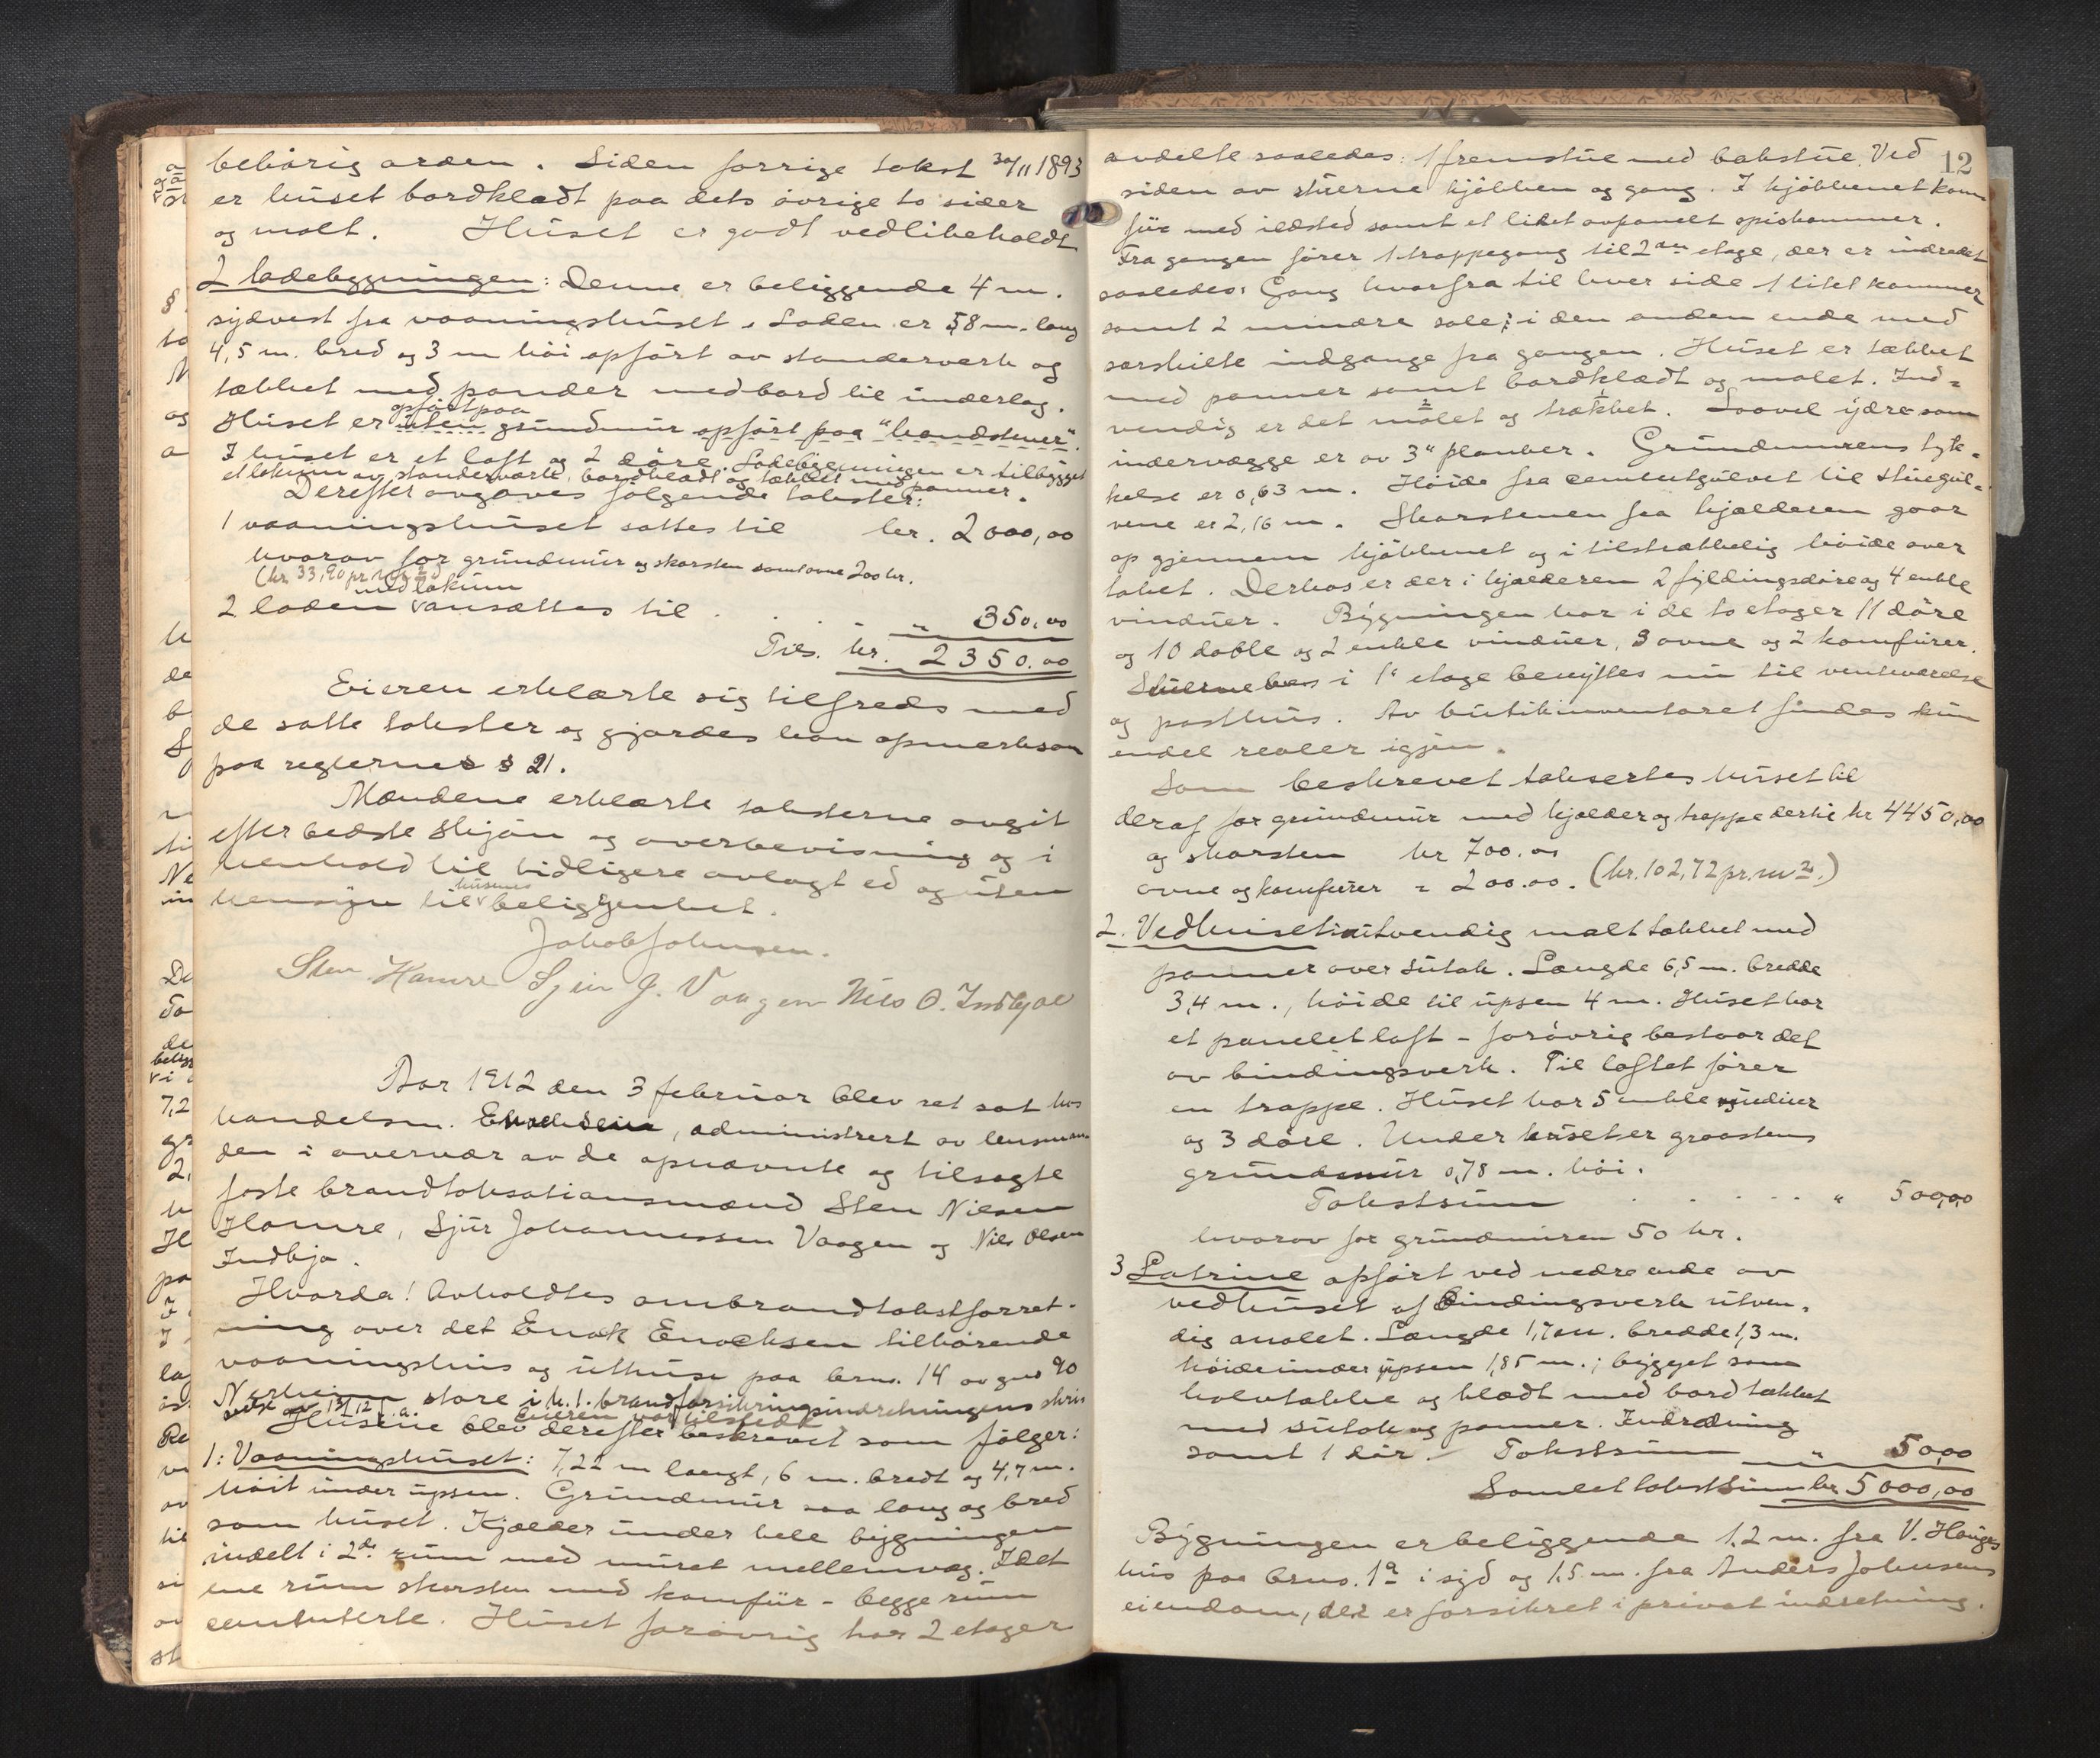 behörig orden. Siden forrige takst 30/11 1893
er huset bordklædt paa dets övrige to sider
og malt. Huset er godt vedlikeholdt
2 ladebygningen: Denne er beliggende 4 m.
sydvest fra vaaningshuset. Laden er 5,8 m. lang
4,5 m. bred og 3 m höi opfört av standerverk og
tækket med pander med bord til underlag.
opfört paa
Huset er uten grundmur opfört paa "handstener".
I huset er et loft og 2 döre. Ladebygningen er tilbygget
et lokum av standerverk, bordklædt og tækket med panner.
Derefter avgaves fölgende takster:
1 vaaningshuset sattes til kr. 2000,00
hvorav for grundmur og skorsten samt ovne 200 kr.
(kr 33,90 pr m2)
med lokum
2 laden ansættes til . . . " 350,00
Tils. kr. 2350.00
Eieren erklærte sig tilfreds med
de satte takster og gjordes han opmerksom
paa reglernes § 21.
Mændene erklærte taksterne avgit
efter bedste skjön og overbevisning og i
henhold til tidligere avlagt ed og uten
husenes
hensyn til beliggenhet.
Jakob Johnsen.
Sten Hamre Sjur J. Vaagen Nils O. Indbjo
Aar 1912 den 3 februar blev ret sat hos
handelsm. Enochsen, administrert av lensman
den i overvær av de opnævnte og tilsagte
faste brandtakstationsmænd Sten Nilsen
Hamre, Sjur Johannessen Vaagen og Nils Olsen
Indbjo.
Hvorda! Avholdtes ombrandtakstforret-
ning over det Enok Enochsen tilhörende
vaaningshus og uthuse paa brno. 14 av gno 90
store i h. t. brandforsikringsindretningens skri
13/12 f.a. Eieren var tilstede
Husene blev derefter beskrevet som fölger:
1: Vaaningshuset: 7,22 m langt, 6 m. bredt og 4,7 m.
höit under upsen. Grundmur saa lang og bred
som huset. Kjælder under hele bygningen
indelt i 2de rum med muret mellemvæg. I det
ene rum skorsten med komfür - begge rum
cementerte. Huset forövrig har 2 etager
12
avdelte saaledes: 1 fremstue med bakstue. Ved
siden av stuerne kjökken og gang. I kjökkenet kom
für med ildsted samt et litet avpanelt spiskammer.
Fra gangen förer 1 trappegang til 2den etage, der er indredet
saaledes: Gang hvorfra til hver side 1 litet kammer
samt 2 mindre sale i den anden ende med
særskilte indgange fra gangen. Huset er tækket
med panner samt bordklædt og malet. Ind-
vendig er det malet og trækket. Saavel ydre som
indervægge er av 3" planker. Grundmurens tyk-
kelse er 0,63 m. Höide fra cementgulvet til stuegul-
vene er 2,16 m. Skorstenen fra kjælderen gaar
op gjennem kjökkenet og i tilstrækkelig höide over
taket. Derhos er der i kjælderen 2 fyldingsdöre og 4 enkle
vinduer. Bygningen har i de to etager 11 döre
og 10 doble og 2 enkle vinduer, 3 ovne og 2 komfurer.
Stuerne i 1ste etage benyttes nu til venteværelse
og posthus. Av butikinventaret findes kun
endel realer igjen.
Som beskrevet taksertes huset til
deraf for grundmur med kjælder og trappe dertil kr 4450,00
og skorsten kr 700.00
ovne og komfurer " 200.00. (kr. 102,72 pr. m2.)
2. Vedhuset: utvendig malt tækket med
panner over sutak. Længde 6,5 m. bredde
3,4 m., höide til upsen 4 m. Huset har
et panelet loft - forövrig bestaar det
av bindingsverk. Til loftet förer
en trappe. Huset har 5 enkle vinduer
og 3 döre. Under huset er graastens
grundmur 0,78 m. höi.
Takstsum . . . . " 500,00
hvorav for grundmuren 50 kr.
3 Latrine opfört ved nedre ende av
vedhuset af Bindingsverk utven-
dig malet. Længde 1,7 m. bredde 1,3 m.
höide under upsen 1,85 m.; bygget som
halvtække og klædt med bord tækket
med sutak og panner. Indredning
samt 1 dör. Takstsum " 50,00
Samlet takstsum kr 5000,00
Bygningen er beliggende 1,2 m. fra V. Hauges
hus paa brno. 19 i syd og 1,5 m. fra Anders Johnsens
eiendom, der er forsikret i privat indretning.